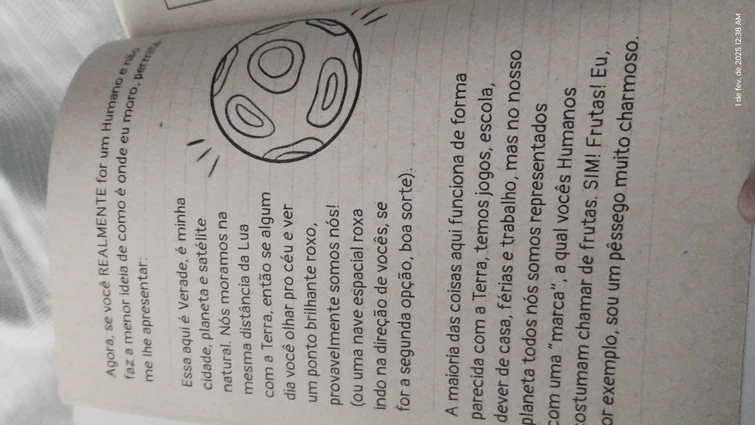 Agora, se você REALMENTE for um Humano e não
faz a menor ideia de como é onde eu moro, permita
me lhe apresentar:
Essa aqui é Verade, é minha
cidade, planeta e satélite
natural. Nós moramos na
mesma distância da Lua
com a Terra, então se algum
dia você olhar pro céu e ver
um ponto brilhante roxo,
provavelmente somos nós!
(ou uma nave espacial roxa
indo na direção de vocês, se
for a segunda opção, boa sorte).
A maioria das coisas aqui funciona de forma
parecida com a Terra, temos jogos, escola,
dever de casa, férias e trabalho, mas no nosso
planeta todos nós somos representados
com uma "marca", a qual vocês Humanos
costumam chamar de frutas. SIM! Frutas! Eu,
or exemplo, sou um pêssego muito charmoso.
1 de fev. de 2025 12:38 AM